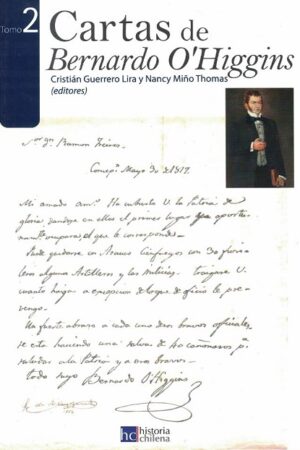 Tomo 2
Cartas de
Bernardo O'Higgins
Cristián Guerrero Lira y Nancy Miño Thomas
(editores)
Sor Dn Ramon Freire
Concepn Mayo 30 de 1817
Mi amado amo. Ha cubierto V. la Patria de
gloria, dandose en ellas el primer lugar que
el que le corresponde
Puede quedarse en Arauco Cienfuegos con 30
alguna Artilleros y las milicias. traigase V.
cuanto haiga a excepcion de lo que de oficio le pre-
vengo.
Un fuerte abrazo a cada uno de esos bravos oficiales,
se esta haciendo una salva de 40 cañonazos pa.
saludar a la Patria y a esos bravos.
todo suyo Bernardo O'Higgins
hc historia
chilena